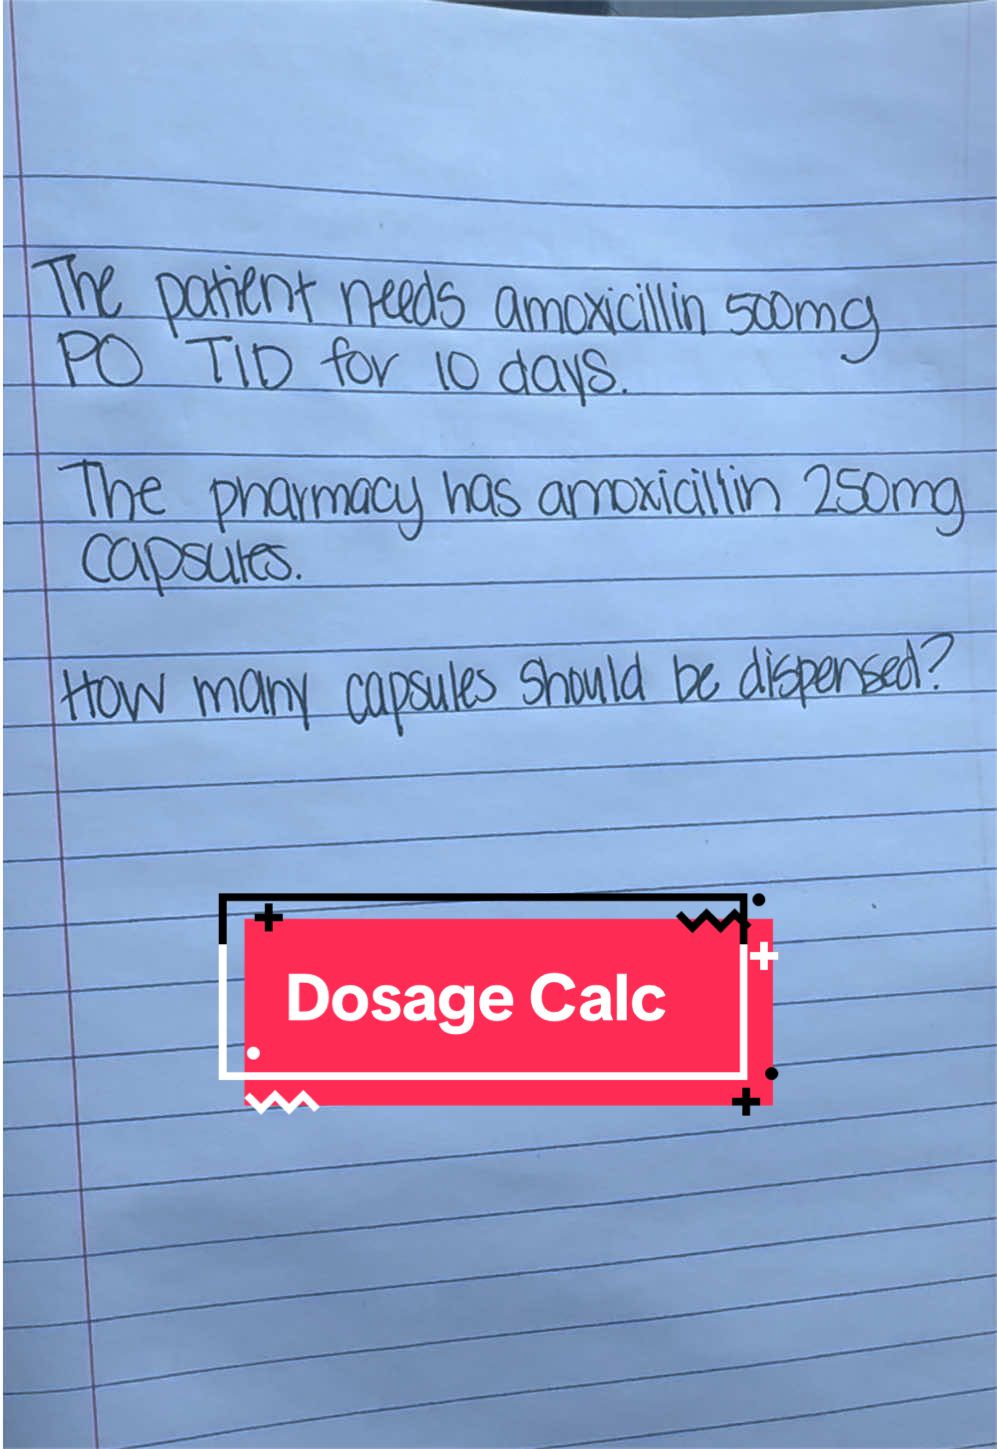 The patient needs amoxicillin 500mg
PO TID for 10 days.
The pharmacy has amoxicillin 250mg
capsules.
How many capsules should be dispensed?
Dosage Calc